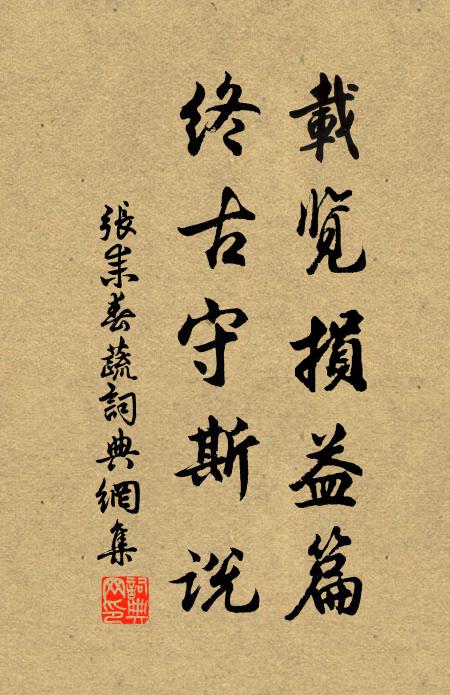 載覽損益篇
終古守斯説
張耒春蔬詞典網集
詞典網印